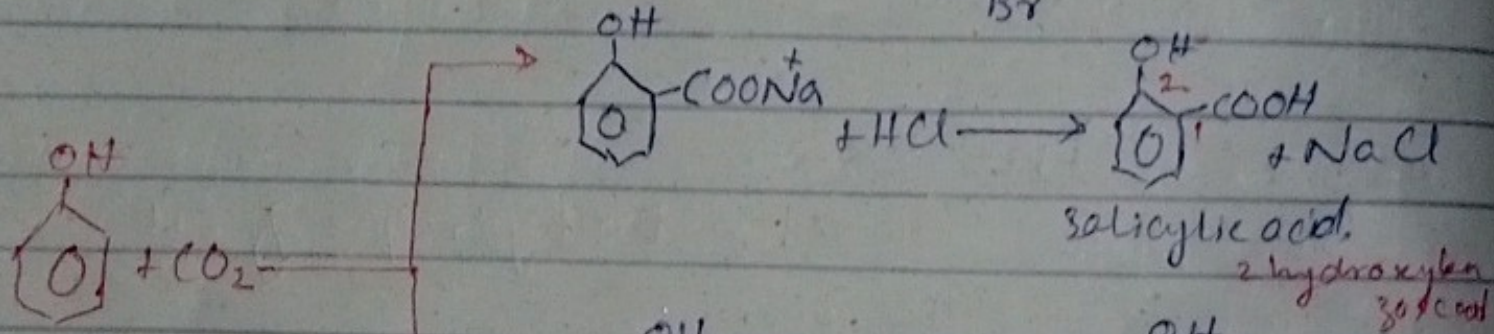 Br
OH
COONa+
+HCl →
OH
2
COOH
1
+ NaCl
OH
+ CO2
salicylic acid.
2 hydroxyben
zoic acid
OH
OH